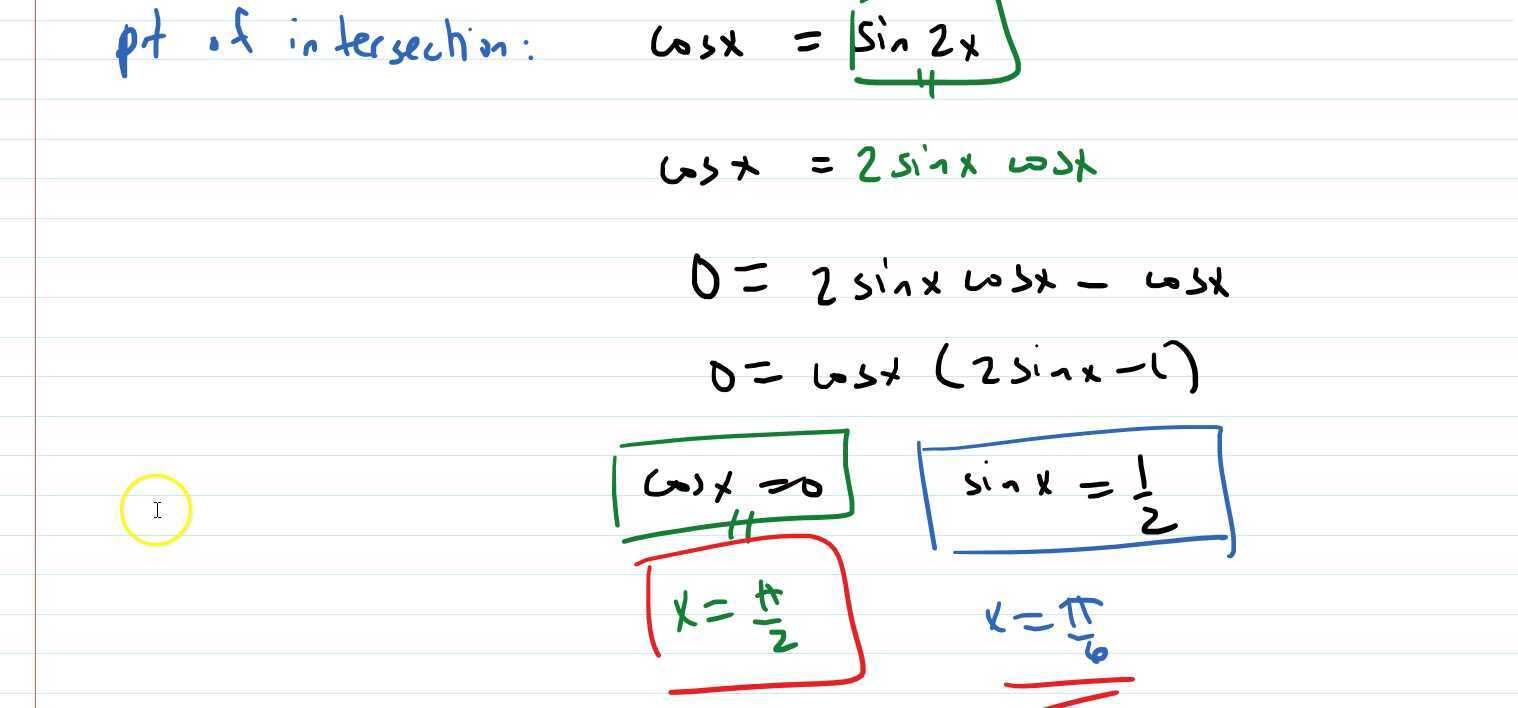 pt of intersection: cosx = sin 2x
cosx = 2 sinx cosx
0 = 2 sinx cosx - cosx
0 = cosx (2 sinx - 1)
cosx = 0 sinx = 1/2
x = π/2 x = π/6